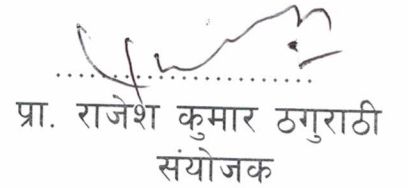 प्रा. राजेश कुमार ठगुराठी
संयोजक